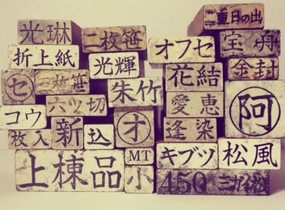 光琳
二枚笹
オフセ
二重日の出
宝舟
折上紙
光輝
花結
金封
セ
二枚笹
朱竹
愛恵
阿
六ツ切
コウ
オ
逢染
枚入
新
込
キブソ
松風
上棟品
MT
小
450